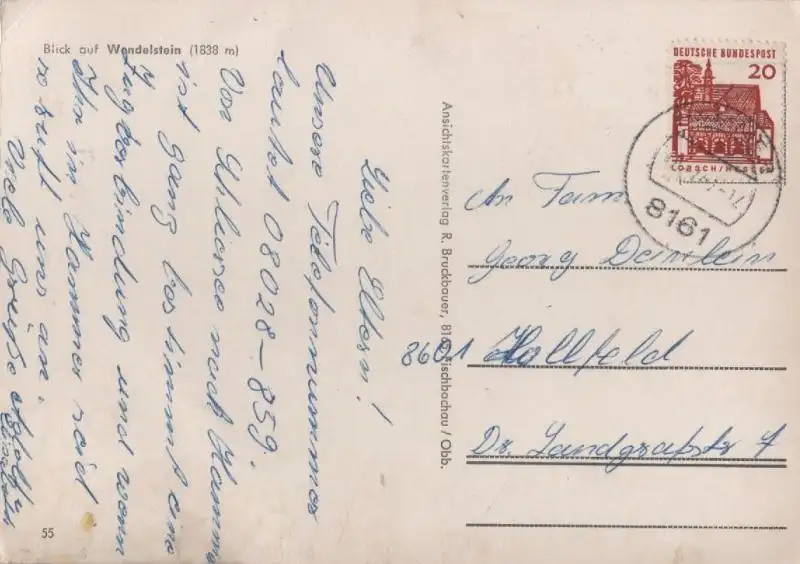 Blick auf Wendelstein (1838 m)
Liebe Eltern!
Unsere Telefonnummer
lautet 08028-859.
Von Schliersee nach Hammer
ist ganz bestimmt eine
Zugverbindung und wenn
Ihr in Hammer seid
so ruft uns an.
Viele Grüße
55
Ansichtskartenverlag R. Bruckbauer, 816 Fischbachau / Obb.
DEUTSCHE BUNDESPOST
20
LORSCH/HESSEN
8161
An Fam.
Georg Deinlein
8601 Hollfeld
Dr. Landgrafstr 7